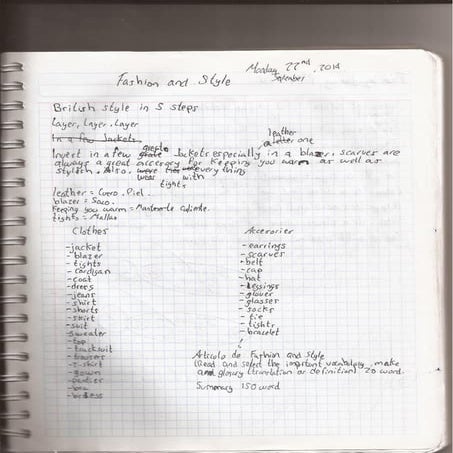 Monday 22nd, 2014
September
Fashion and Style
British style in 5 steps
Layer, Layer, Layer
In a few Jackets
leather
Invest in a few Jackets especially in a blazer, one scarves are
always a great accesory for keeping you warm as well as
stylish. Also, wear with everything
tights
leather = Cuero. Piel.
blazer = Saco.
Keeping you warm = Mantenerte caliente.
tights = Mallas
Clothes
-jacket
-blazer
-tights
-cardigan
-coat
-dress
-jeans
-shirt
-shorts
-skirt
-suit
-sweater
-top
-tracksuit
-trousers
-t-shirt
-gown
-panties
-bra
Accesories
-earrings
-scarves
-belt
-cap
-hat
-glover
-glasses
-socks
-tie
-tights
-bracelet
Articulo de Fashion and Style
(Read and select the important vocabulary, make
and glosary (translation or definition) 20 word.
Summary 150 word